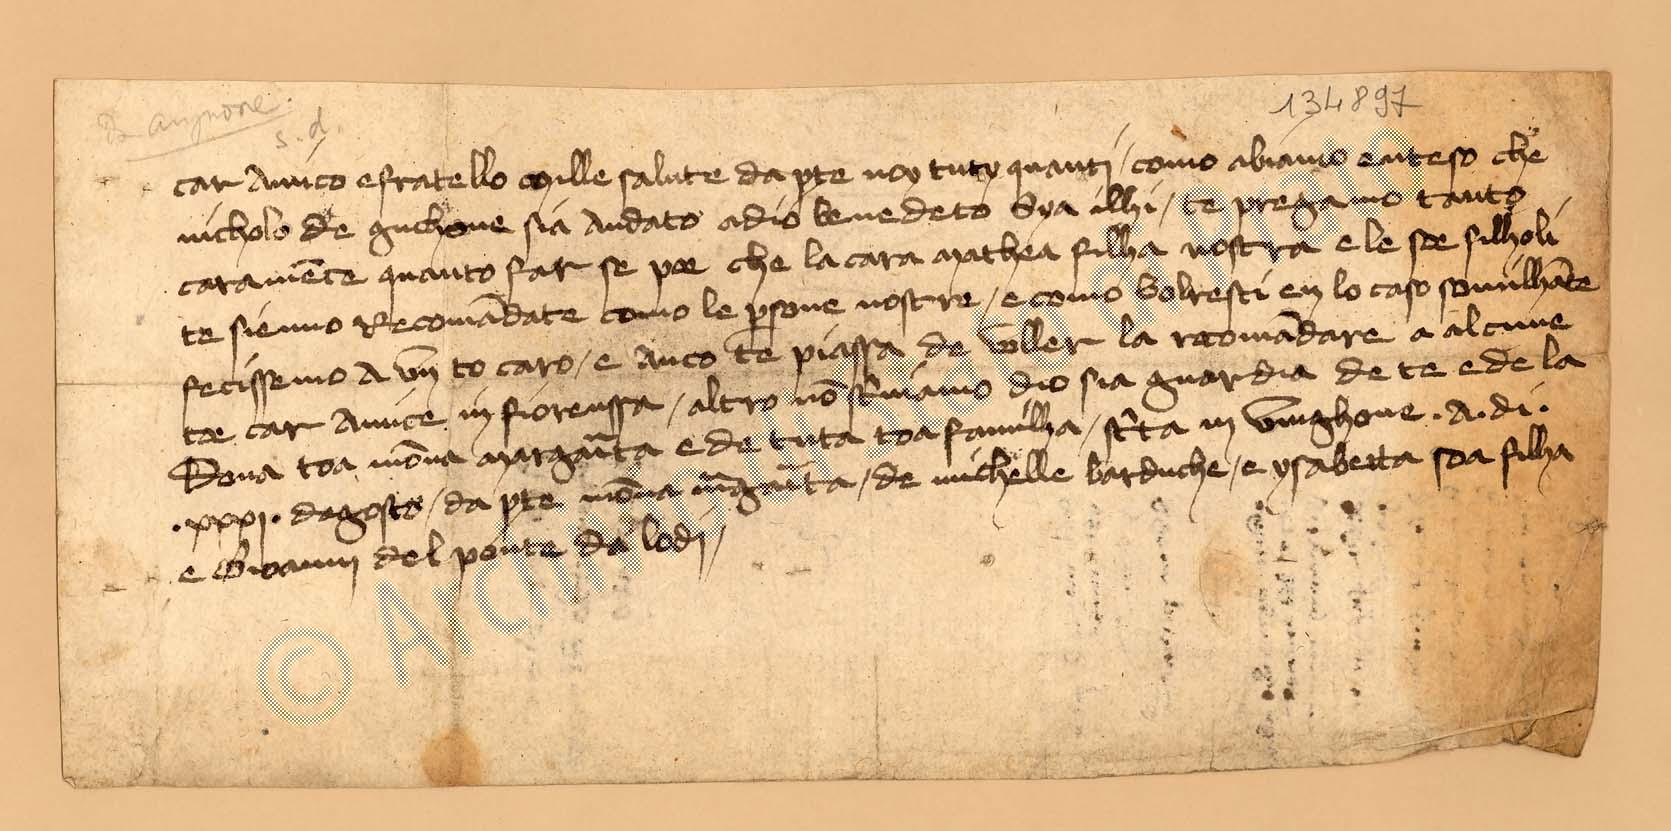 da avignone
s. d.
134897
car Amico e fratello mille salute da pte noy tuty quanti / como abiamo enteso che
nicholo de guchone sia Andato a dio benedeto sya illhi / te pregamo tanto
caramēte quanto far se poe che la cara mathea filha nostra e le soe filholi
te sienno Recomādate como le psone nostre / e como volresti en lo caso somilhāte
fecissemo A vn to caro / e Anco te piassa de voller la recomādare a alcune
toe car Amice in fiorenssa / altro nō scriviamo dio sia guardia de te e de la
Dona toa mōna margarita e de tuta toa familha / scrita in vinghone . A. di .
. xxxj . dagosto / da pte mōna mgarita / de michelle barduche / e ysabetta soa filha
e Giovanni del ponte da lodi /
© Archivio di Stato di Prato